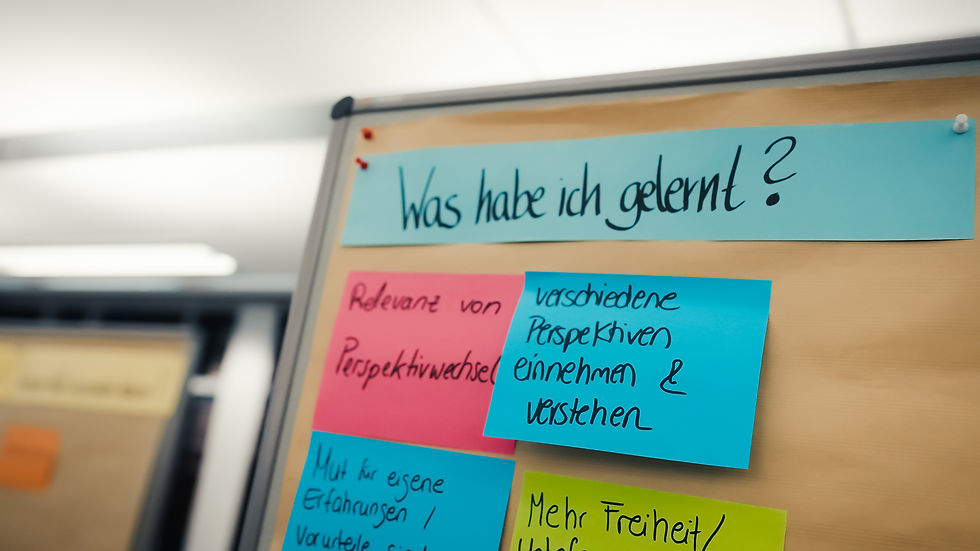 Was habe ich gelernt?
Relevanz von
Perspektivwechsel
verschiedene
Perspektiven
einnehmen &
verstehen
Mut für eigene
Erfahrungen /
Vorurteile
Mehr Freiheit/